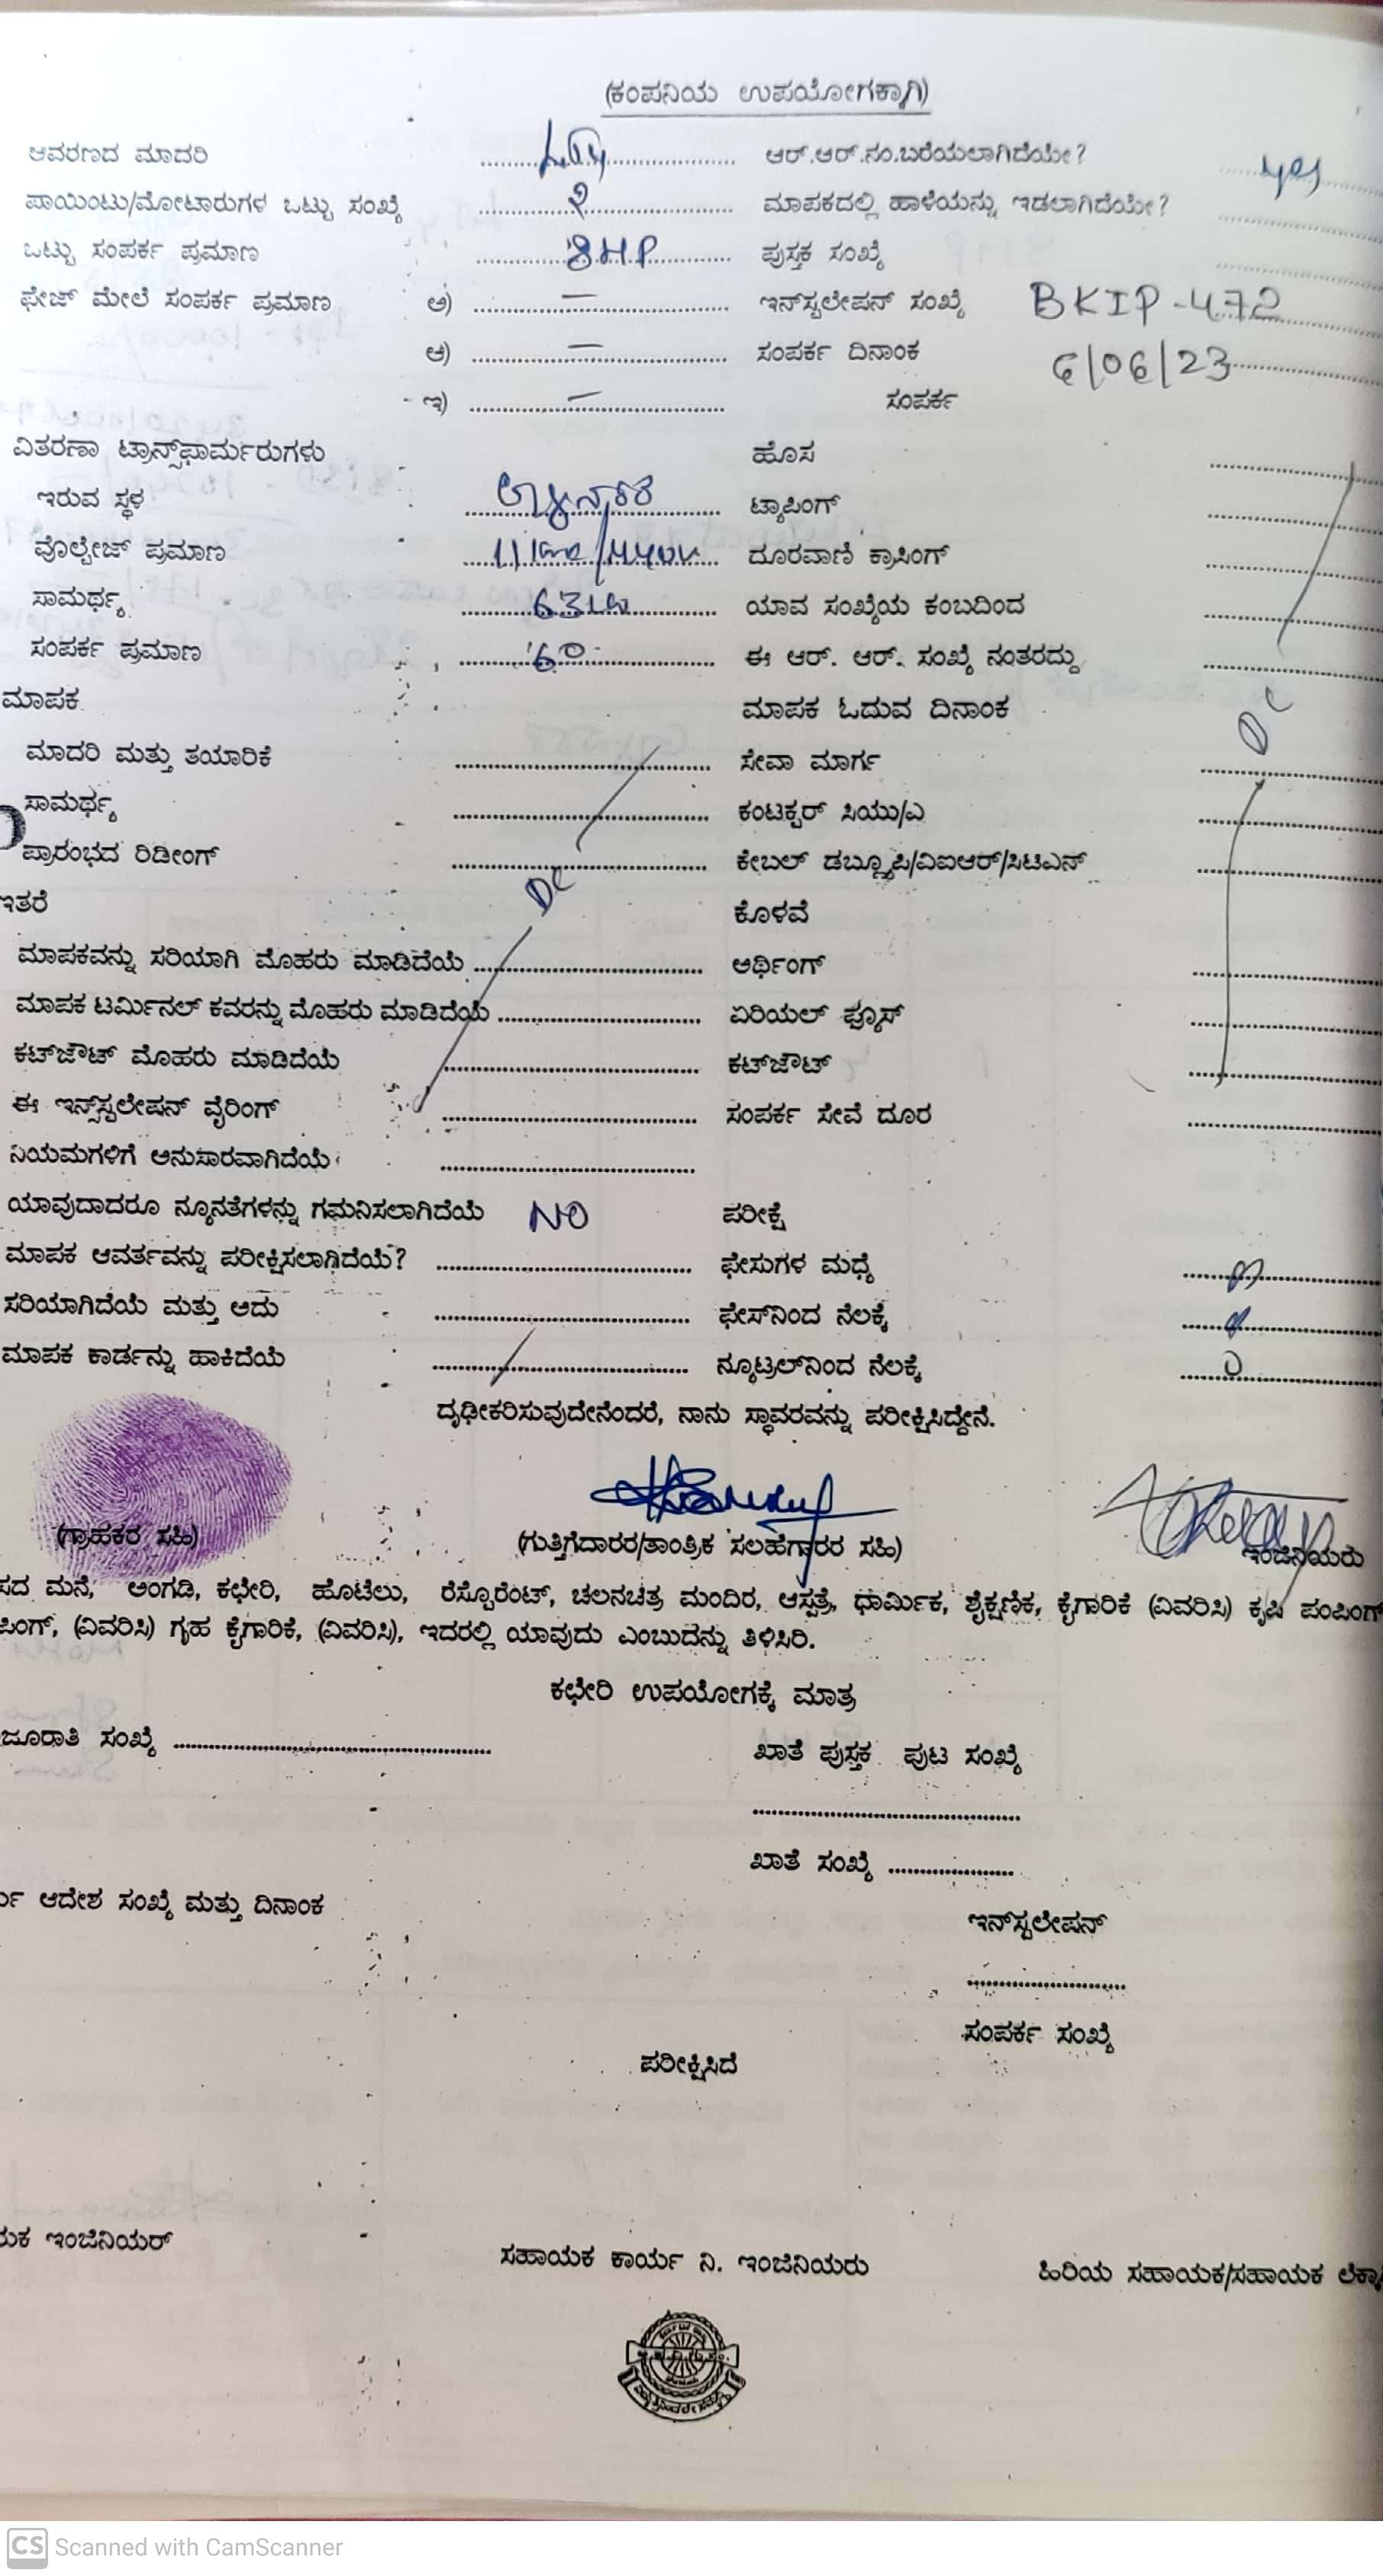 (ಕಂಪನಿಯ ಉಪಯೋಗಕ್ಕಾಗಿ)
ಆವರಣದ ಮಾದರಿ ಆರ್.ಆರ್.ನಂ.ಬರೆಯಲಾಗಿದೆಯೇ? yes
ಪಾಯಿಂಟು/ಮೋಟಾರುಗಳ ಒಟ್ಟು ಸಂಖ್ಯೆ ಮಾಪಕದಲ್ಲಿ ಹಾಳೆಯನ್ನು ಇಡಲಾಗಿದೆಯೇ?
ಒಟ್ಟು ಸಂಪರ್ಕ ಪ್ರಮಾಣ 8HP ಪುಸ್ತಕ ಸಂಖ್ಯೆ
ಫೇಜ್ ಮೇಲೆ ಸಂಪರ್ಕ ಪ್ರಮಾಣ ಅ) — ಇನ್‌ಸ್ಟಲೇಷನ್ ಸಂಖ್ಯೆ BKIP-472
ಆ) — ಸಂಪರ್ಕ ದಿನಾಂಕ 6/06/23
ಇ) — ಸಂಪರ್ಕ
ವಿತರಣಾ ಟ್ರಾನ್ಸ್‌ಫಾರ್ಮರುಗಳು ಹೊಸ
ಇರುವ ಸ್ಥಳ ಟ್ಯಾಪಿಂಗ್
ವೊಲ್ಟೇಜ್ ಪ್ರಮಾಣ ದೂರವಾಣಿ ಕ್ರಾಸಿಂಗ್
ಸಾಮರ್ಥ್ಯ ಯಾವ ಸಂಖ್ಯೆಯ ಕಂಬದಿಂದ
ಸಂಪರ್ಕ ಪ್ರಮಾಣ 60 ಈ ಆರ್. ಆರ್. ಸಂಖ್ಯೆ ನಂತರದ್ದು
ಮಾಪಕ ಮಾಪಕ ಓದುವ ದಿನಾಂಕ
ಮಾದರಿ ಮತ್ತು ತಯಾರಿಕೆ ಸೇವಾ ಮಾರ್ಗ DC
ಸಾಮರ್ಥ್ಯ ಕಂಟಕ್ಟರ್ ಸಿಯು/ಎ
ಪ್ರಾರಂಭದ ರಿಡೀಂಗ್ ಕೇಬಲ್ ಡಬ್ಲ್ಯೂಪಿ/ವಿಐಆರ್/ಸಿಟಿಎಸ್
ಇತರೆ DC ಕೊಳವೆ
ಮಾಪಕವನ್ನು ಸರಿಯಾಗಿ ಮೊಹರು ಮಾಡಿದೆಯೆ ಅರ್ಥಿಂಗ್
ಮಾಪಕ ಟರ್ಮಿನಲ್ ಕವರನ್ನು ಮೊಹರು ಮಾಡಿದೆಯೆ ಏರಿಯಲ್ ಫ್ಯೂಸ್
ಕಟ್‌ಔಟ್ ಮೊಹರು ಮಾಡಿದೆಯೆ ಕಟ್‌ಔಟ್
ಈ ಇನ್ಸ್‌ಸ್ಟಲೇಷನ್ ವೈರಿಂಗ್ ಸಂಪರ್ಕ ಸೇವೆ ದೂರ
ನಿಯಮಗಳಿಗೆ ಅನುಸಾರವಾಗಿದೆಯೆ
ಯಾವುದಾದರೂ ನ್ಯೂನತೆಗಳನ್ನು ಗಮನಿಸಲಾಗಿದೆಯೆ NO ಪರೀಕ್ಷೆ
ಮಾಪಕ ಆವರ್ತವನ್ನು ಪರೀಕ್ಷಿಸಲಾಗಿದೆಯೆ? ಫೇಸುಗಳ ಮಧ್ಯೆ
ಸರಿಯಾಗಿದೆಯೆ ಮತ್ತು ಅದು ಫೇಸ್‌ನಿಂದ ನೆಲಕ್ಕೆ
ಮಾಪಕ ಕಾರ್ಡನ್ನು ಹಾಕಿದೆಯೆ ನ್ಯೂಟ್ರಲ್‌ನಿಂದ ನೆಲಕ್ಕೆ
ದೃಢೀಕರಿಸುವುದೇನೆಂದರೆ, ನಾನು ಸ್ಥಾವರವನ್ನು ಪರೀಕ್ಷಿಸಿದ್ದೇನೆ.
(ಗ್ರಾಹಕರ ಸಹಿ) (ಗುತ್ತಿಗೆದಾರರ/ತಾಂತ್ರಿಕ ಸಲಹೆಗಾರರ ಸಹಿ) ಇಂಜಿನಿಯರು
ಸದ ಮನೆ, ಅಂಗಡಿ, ಕಛೇರಿ, ಹೊಟೆಲು, ರೆಸ್ಟೊರೆಂಟ್, ಚಲನಚಿತ್ರ ಮಂದಿರ, ಆಸ್ಪತ್ರೆ, ಧಾರ್ಮಿಕ, ಶೈಕ್ಷಣಿಕ, ಕೈಗಾರಿಕೆ (ವಿವರಿಸಿ) ಕೃಷಿ ಪಂಪಿಂಗ್
ಪಿಂಗ್, (ವಿವರಿಸಿ) ಗೃಹ ಕೈಗಾರಿಕೆ, (ವಿವರಿಸಿ), ಇದರಲ್ಲಿ ಯಾವುದು ಎಂಬುದನ್ನು ತಿಳಿಸಿರಿ.
ಕಛೇರಿ ಉಪಯೋಗಕ್ಕೆ ಮಾತ್ರ
ಜೂರಾತಿ ಸಂಖ್ಯೆ ಖಾತೆ ಪುಸ್ತಕ ಪುಟ ಸಂಖ್ಯೆ
ಖಾತೆ ಸಂಖ್ಯೆ
ರ್ಯ ಆದೇಶ ಸಂಖ್ಯೆ ಮತ್ತು ದಿನಾಂಕ
ಇನ್‌ಸ್ಟಲೇಷನ್
ಸಂಪರ್ಕ ಸಂಖ್ಯೆ
ಪರೀಕ್ಷಿಸಿದೆ
ಯಕ ಇಂಜಿನಿಯರ್ ಸಹಾಯಕ ಕಾರ್ಯ ನಿ. ಇಂಜಿನಿಯರು ಹಿರಿಯ ಸಹಾಯಕ/ಸಹಾಯಕ
CS Scanned with CamScanner